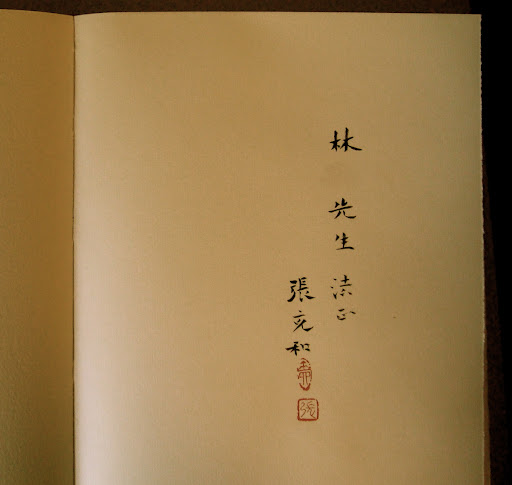 林 先生 法正
張充和
張